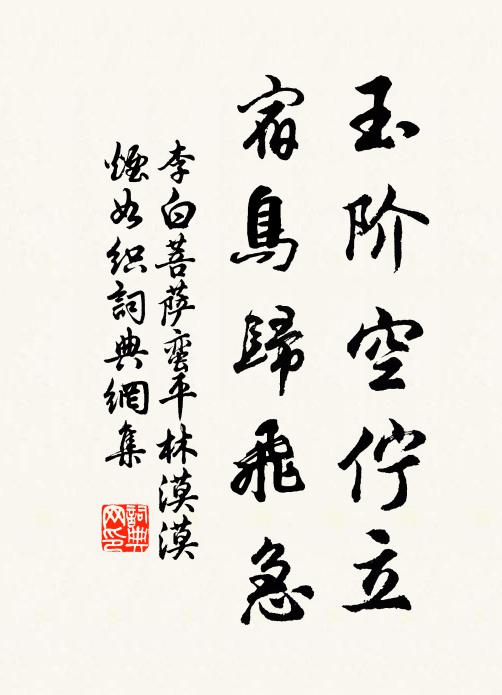 玉阶空伫立
宿鳥歸飛急
李白菩萨蛮平林漠漠
烟如织詞典網集
詞典
网印